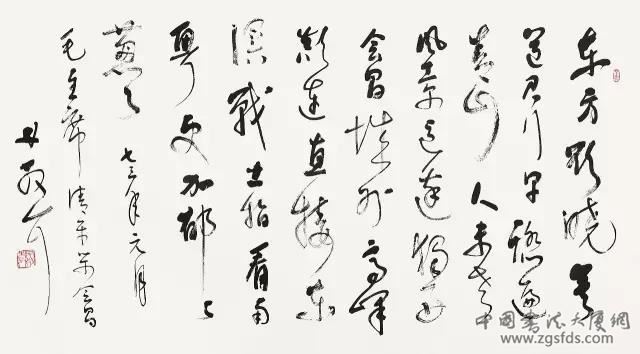 东方欲晓莫
道君行早踏遍
青山人未老
風景这邊独好
會昌城外高峰
颠连直接东
溟戰士指看南
粤更加郁々
葱々 七三年元月
毛主席清平乐會昌
中國書法大厦網
www.zgsfds.com